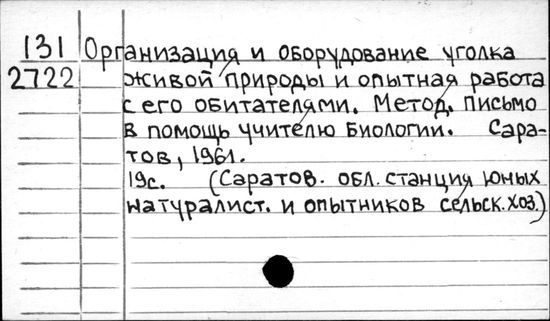 131 Организация и оборудование уголка
2722 живой природы и опытная работа
с его обитателями. Метод. письмо
в помощь учителю биологии. Сара-
тов, 1961.
19с. (Саратов. обл. станция юных
натуралист. и опытников сельск.хоз.)